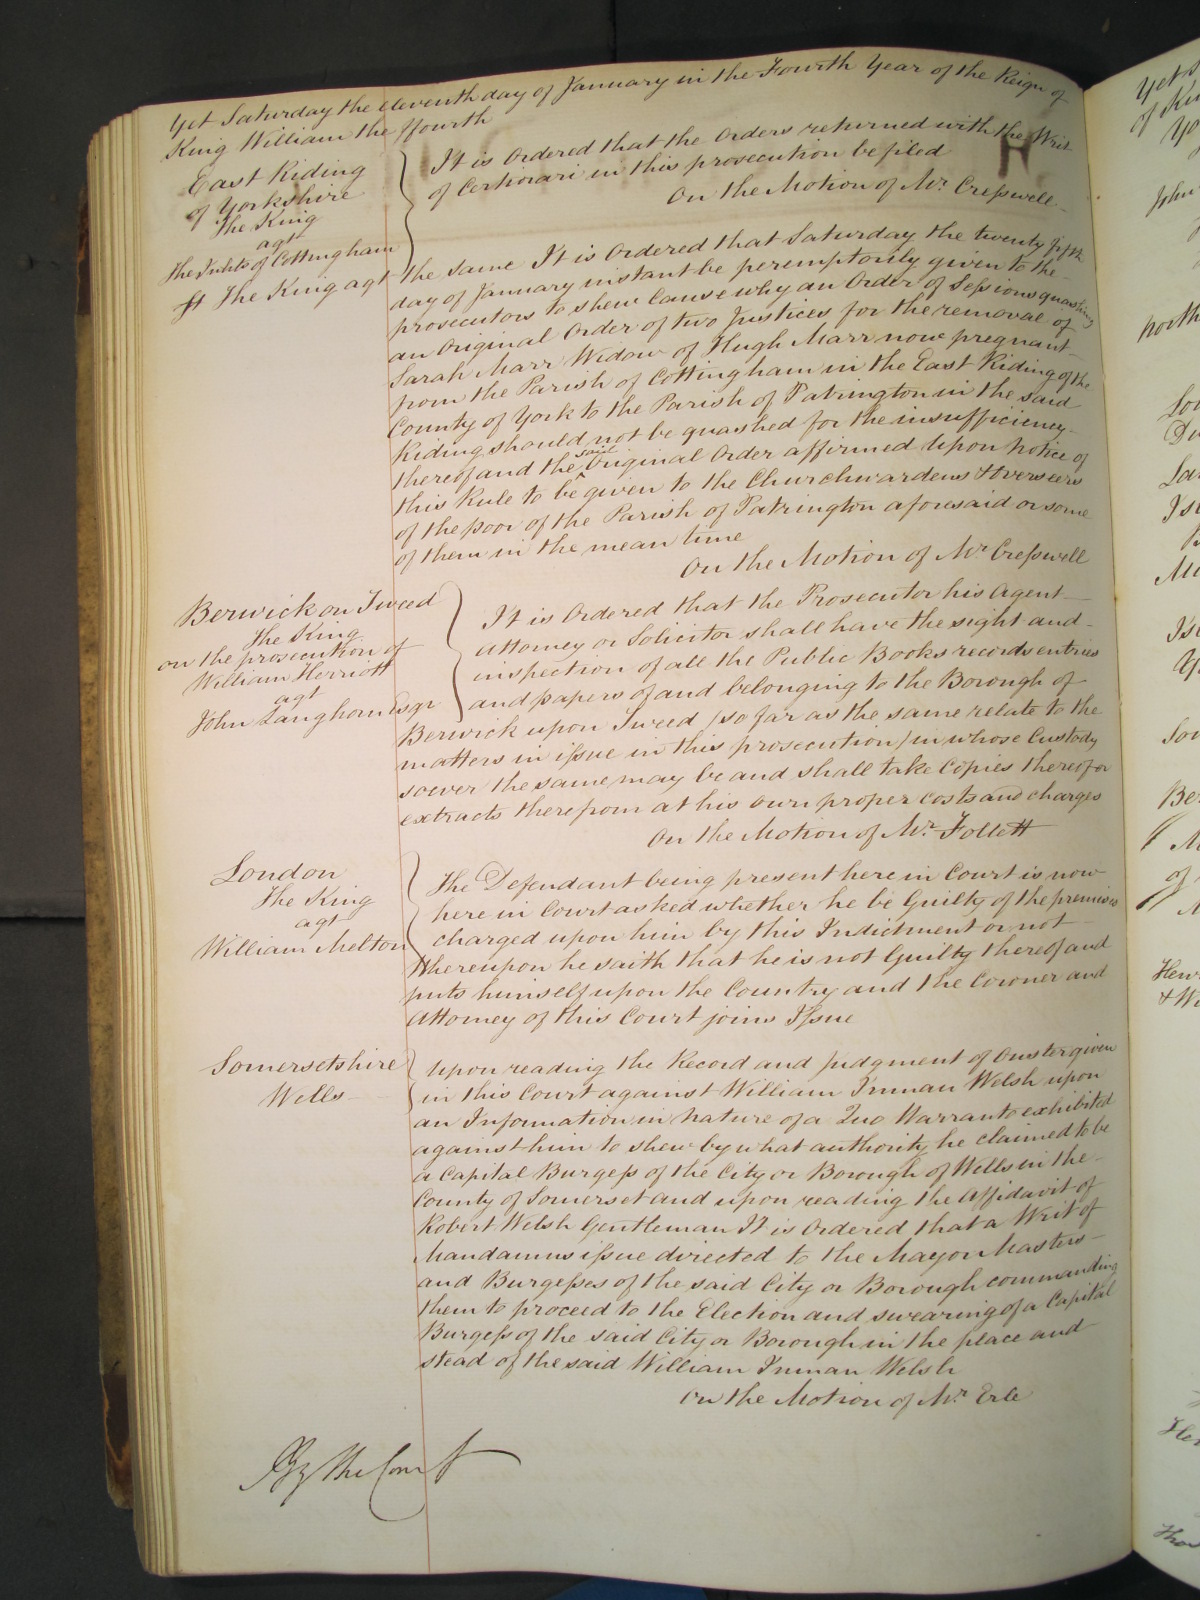 Yet Saturday the eleventh day of January in the Fourth Year of the Reign of
King William the ffourth
East Riding
of Yorkshire
The King
agt
The Inhts of Cottingham
It is Ordered that the Orders returned with the Writ
of Certiorari in this prosecution be filed
On the Motion of Mr. Cresswell
The King agt the same It is Ordered that Saturday the twenty fifth
day of January instant be peremptorily given to the
prosecutors to shew Cause why an Order of Sessions quashing
an Original Order of two Justices for the removal of
Sarah Marr Widow of Hugh Marr now pregnant
from the Parish of Cottingham in the East Riding of the
County of York to the Parish of Patrington in the said
Riding should not be quashed for the insufficiency
thereof and the said Original Order affirmed Upon Notice of
this Rule to be given to the Churchwardens & Overseers
of the poor of the Parish of Patrington aforesaid or some
of them in the mean time
On the Motion of Mr. Cresswell
Berwick on Tweed
The King
on the prosecution of
William Herriott
agt
John Langhorn Esqr
It is Ordered that the Prosecutor his Agent
Attorney or Solicitor shall have the sight and
inspection of all the Public Books records entries
and papers of and belonging to the Borough of
Berwick upon Tweed /so far as the same relate to the
matters in issue in this prosecution/ in whose Custody
soever the same may be and shall take Copies thereof or
extracts therefrom at his own proper costs and charges
On the Motion of Mr. Follett
London
The King
agt
William Melton
The Defendant being present here in Court is now
here in Court asked whether he be Guilty of the premises
charged upon him by this Indictment or not
Whereupon he saith that he is not Guilty thereof and
puts himself upon the Country and the Coroner and
Attorney of this Court joins Issue
Somersetshire
Wells
Upon reading the Record and Judgment of Ouster given
in this Court against William Inman Welsh upon
an Information in nature of a Quo Warranto exhibited
against him to shew by what authority he claimed to be
a Capital Burgess of the City or Borough of Wells in the
County of Somerset and upon reading the Affidavit of
Robert Welsh Gentleman It is Ordered that a Writ of
Mandamus issue directed to the Mayor Masters
and Burgesses of the said City or Borough commanding
them to proceed to the Election and swearing of a Capital
Burgess of the said City or Borough in the place and
stead of the said William Inman Welsh
On the Motion of Mr. Erle
By the Court